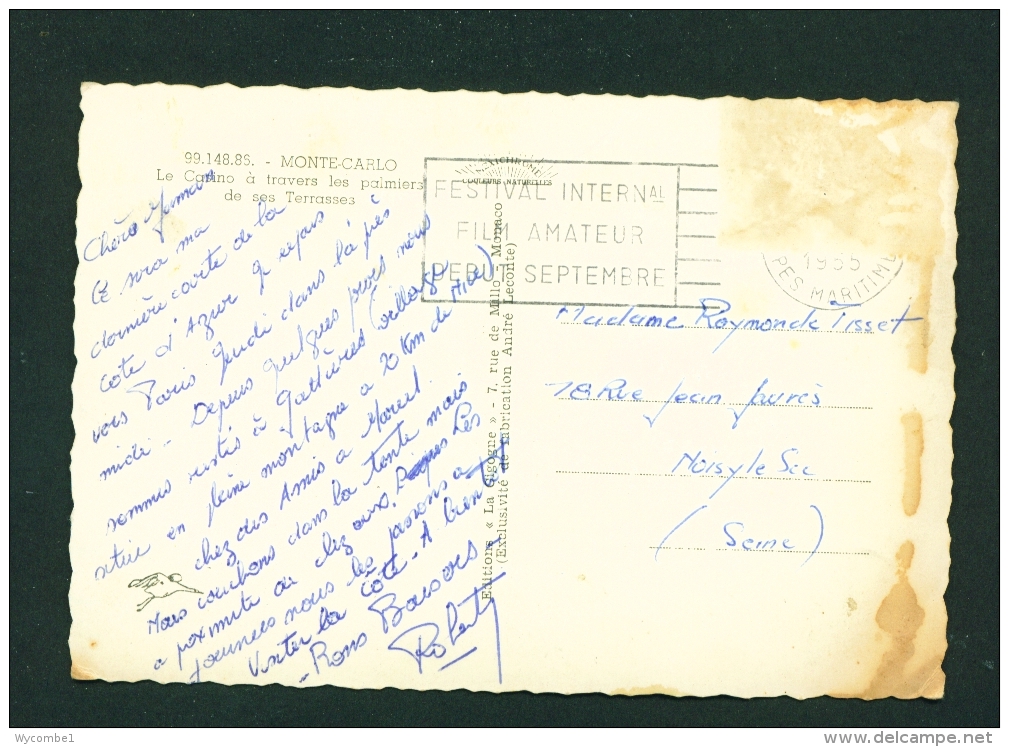 99.148.86. - MONTE-CARLO
Le Casino à travers les palmiers
de ses Terrasses
Chère
Ce sera ma
dernière carte de la
côte d'Azur je repars
vers Paris jeudi dans l'a prés
midi - Depuis quelques jours nous
sommes restés à Gattières (village
située en pleine montagne a 20 Km de Nice)
chez des Amis a Marcel
Nous couchons dans la tente mais
a poximité de chez eux. Les
journées nous les passons a
Visiter la côte - A bientôt
- Bons Baisers
Roberty
DICHROME
COULEURS NATURELLES
FESTIVAL INTERNAL
FILM AMATEUR
DEBUT SEPTEMBRE
1955
PES MARITIME
Editions « La Cigogne » - 7, rue de Millo - Monaco
(Exclusivité de fabrication André Leconte)
Madame Raymonde Tisset
18 Rue Jean Jaurès
Noisy le Sec
(Seine)
Wycombe1
www.delcampe.net